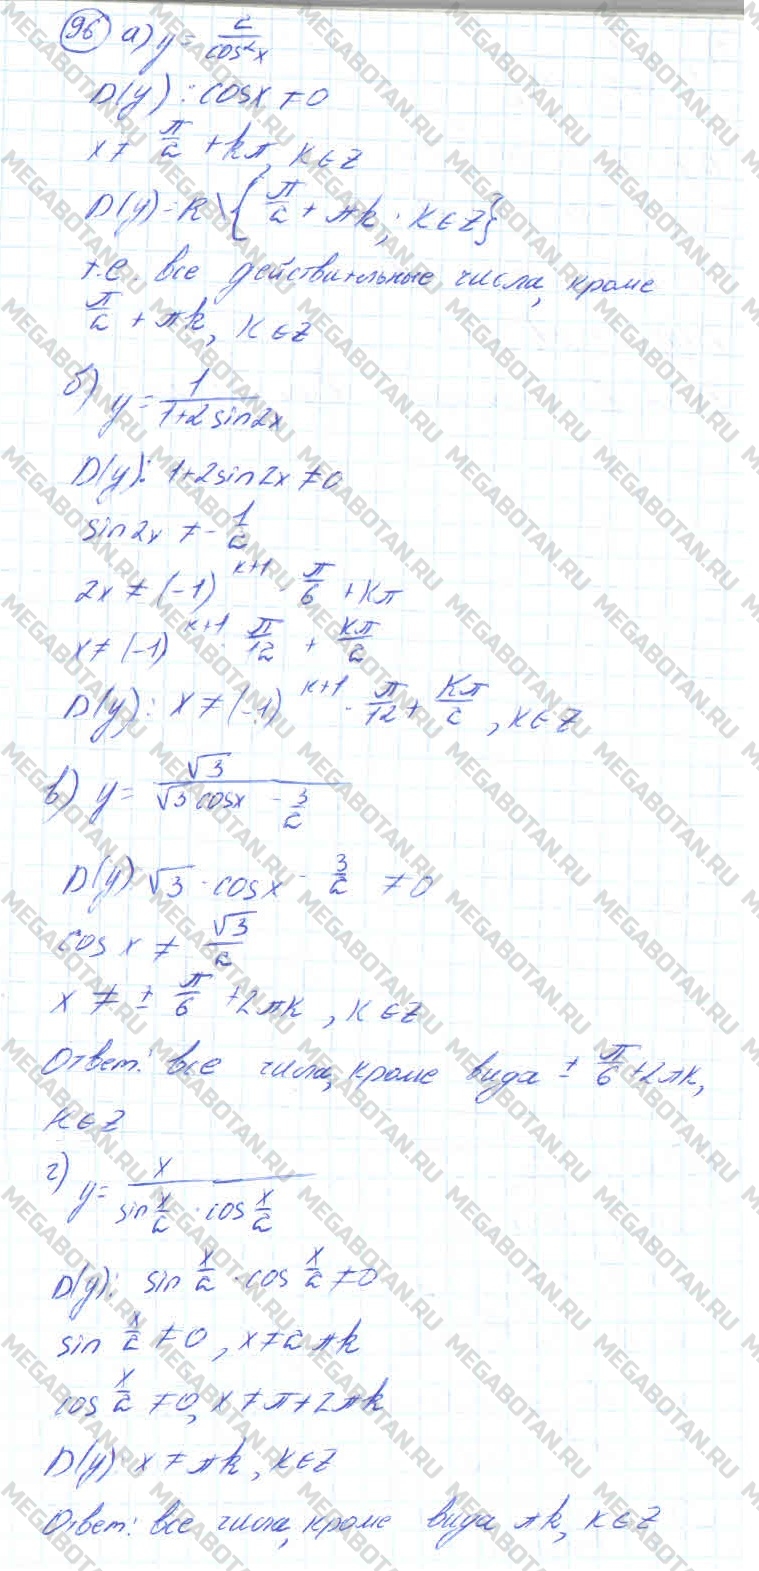 96 а) y = 2/cos²x
D(y): cosx ≠ 0
x ≠ π/2 + kπ, k ∈ Z
D(y) = R \ {π/2 + πk; k ∈ Z}
т.е. все действительные числа, кроме
π/2 + πk, k ∈ Z
б) y = 1/(1+2sin2x)
D(y): 1+2sin2x ≠ 0
sin2x ≠ -1/2
2x ≠ (-1)^(k+1) · π/6 + kπ
x ≠ (-1)^(k+1) · π/12 + kπ/2
D(y): x ≠ (-1)^(k+1) · π/12 + kπ/2, k ∈ Z
в) y = √3/(√3 cosx - 3/2)
D(y) √3 · cosx - 3/2 ≠ 0
cos x ≠ √3/2
x ≠ ± π/6 + 2πk, k ∈ Z
Ответ: все числа, кроме вида ± π/6 + 2πk,
k ∈ Z
г) y = x/(sin x/2 · cos x/2)
D(y): sin x/2 · cos x/2 ≠ 0
sin x/2 ≠ 0, x ≠ 2πk
cos x/2 ≠ 0, x ≠ π + 2πk
D(y) x ≠ πk, k ∈ Z
Ответ: все числа, кроме вида πk, k ∈ Z
MEGABOTAN.RU